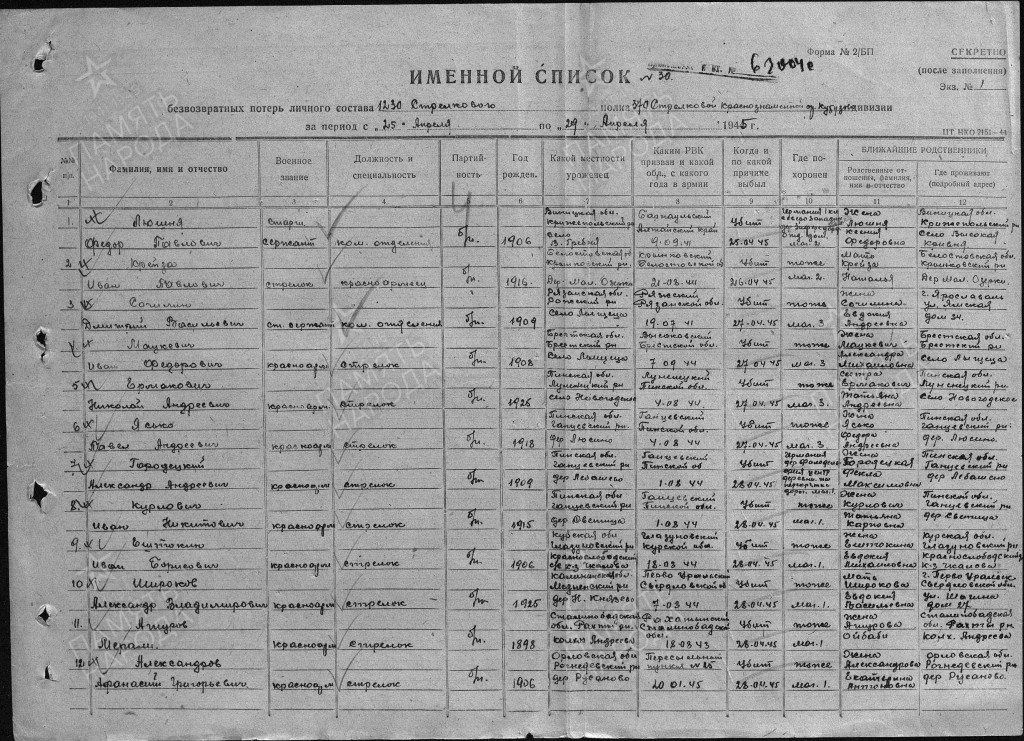 Форма № 2/БП
СЕКРЕТНО
(после заполнения)
Экз. № 1
63004с
ИМЕННОЙ СПИСОК № 30
безвозвратных потерь личного состава 1230 Стрелкового полка 370 Стрелковой краснознаменной дивизии
за период с „25" Апреля по „29" Апреля 1945 г.
№№ п/п.
Фамилия, имя и отчество
Военное звание
Должность и специальность
Партийность
Год рожден.
Какой местности уроженец
Каким РВК призван и какой обл., с какого года в армии
Когда и по какой причине выбыл
Где похоронен
БЛИЖАЙШИЕ РОДСТВЕННИКИ
Родственные отношения, фамилия, имя и отчество
Где проживают (подробный адрес)
1 2 3 4 5 6 7 8 9 10 11 12
1. Люшня Старш. Винницкая обл. Барнаульский Убит Жена Винницкая обл.
Федор Павлович сержант ком. отделения б/п. 1906 Село 9.09.41 25.04.45 маг. 2 Федоровна
2 Крейза Белостокская обл. Убит тоже Мать Крейза Белостокская обл.
Иван Павлович стрелок красноармеец б/п. 1916 Дер Мал. Озерки 21.08.44 26.04.45 маг. 2 Наталья Дер Мал. Озерки
3 Рязанская обл. Ряжский Рязанской обл. Убит тоже Жена г. Ярославль ул. Ямская
Дмитрий Васильевич ст. сержант ком. отделения б/п. 1909 19.07.41 27.04.45 маг. 3 Евдокия Андреевна дом 34.
Мацкевич Брестская обл. Брестский рн Высоковский Брестской обл. Убит тоже Жена Мацкевич Брестская обл. Брестский рн
Иван Федорович красноарм стрелок б/п. 1908 7.09.44 27.04.45 маг. 3 Александра Михайловна
5 Ермакович Пинская обл. Лунинецкий рн Лунинецкий Пинской обл. Убит тоже Сестра Ермакович Пинская обл. Лунинецкий рн
Николай Андреевич красноарм стрелок б/п. 1926 4.08.44 27.04.45 маг. 3. Татьяна Андреевна
6 Ясько Пинская обл. Ганцевский рн Ганцевский Пинской обл. Убит тоже Жена Ясько Пинская обл. Ганцевский рн
Павел Андреевич красноарм стрелок б/п. 1918 дер. Люсино 4.08.44 27.04.45 маг. 3 Андреевна дер. Люсино
7. Городецкий Пинская обл. Ганцевский рн Ганцевский Пинской об Убит Германия Жена Городецкая Пинская обл. Ганцевский рн
Александр Андреевич красноарм стрелок б/п. 1909 1.08.44 28.04.45 маг. 1 Фекла Максимовна
8. Курлович Пинская обл. Ганцевский рн Ганцевский Пинской обл. Убит тоже Жена Курлович Пинской обл. Ганцевский рн
Иван Никитович красноарм стрелок б/п. 1915 1.08.44 28.04.45 маг. 1. Татьяна Карповна
9. Курская обл. Глазуновский рн Глазуновский Курской обл. Убит тоже Жена Курская обл. Глазуновский рн
Иван Борисович красноарм стрелок б/п. 1906 18.03.44 28.04.45 маг. 1. Евдокия Михайловна
10 Широков Калининская обл. Перво Уральский Свердловской обл Убит тоже Мать Широкова г. Перво Уральск Свердловской обл
Александр Владимирович красноарм стрелок б/п. 1925 дер Н. Князево 7.03.44 28.04.45 маг. 1. Евдокия Васильевна дом 27
11. Ашуров Сталинабадская обл. Сталинабадской обл. Убит тоже Жена Ашурова Сталинабадская обл.
Мерали. красноарм стрелок б/п. 1898 колхоз Андреева 18.03.43 28.04.45 маг. 1 Ойбаби колх. Андреева
12 Александров Орловская обл. Рогнединский рн Пересыльный пункт № 25 Убит тоже Жена Александрова Орловская обл. Рогнединский рн
Афанасий Григорьевич красноарм стрелок б/п. 1906 дер Русаново 20.01.45 28.04.45 маг. 1. Екатерина Антоновна дер Русаново
ПАМЯТЬ НАРОДА